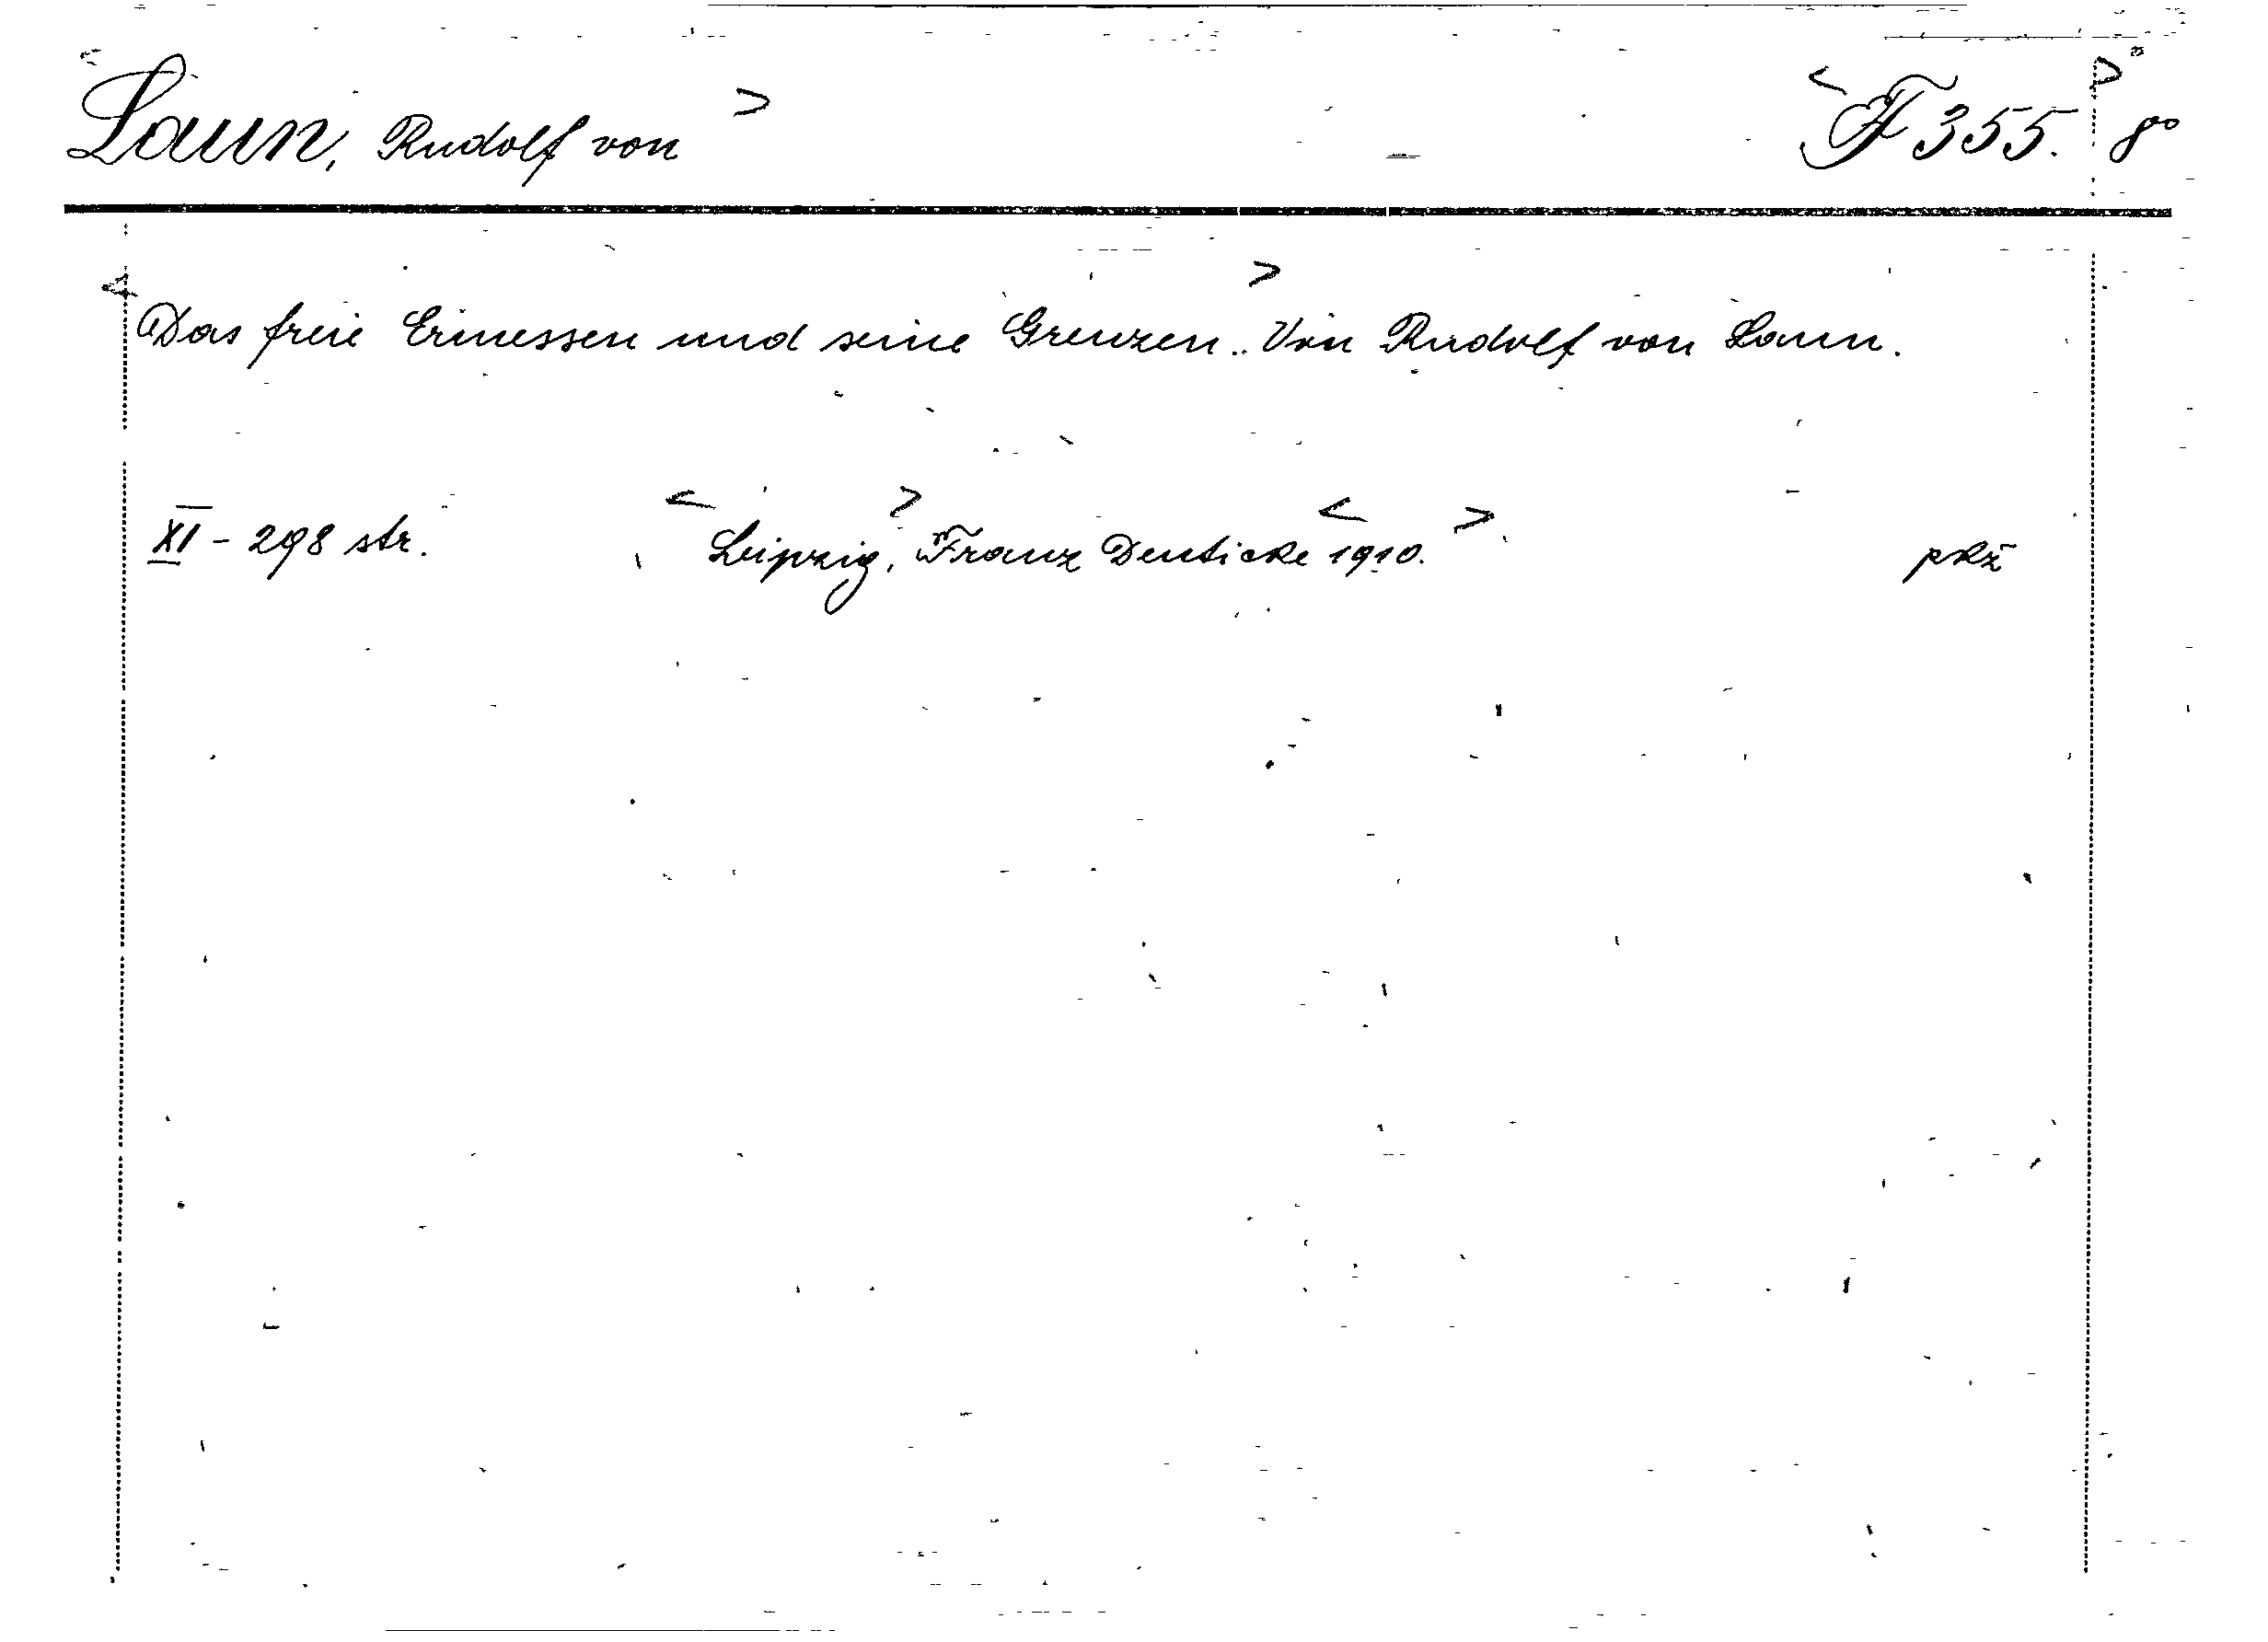 <Laun, Rudolf von> <F 355.> 8°
<Das freie Ermessen und seine Grenzen.> Von Rudolf von Laun.
XI - 298 str. <Leipzig,> Franz Deuticke <1910.> pkž